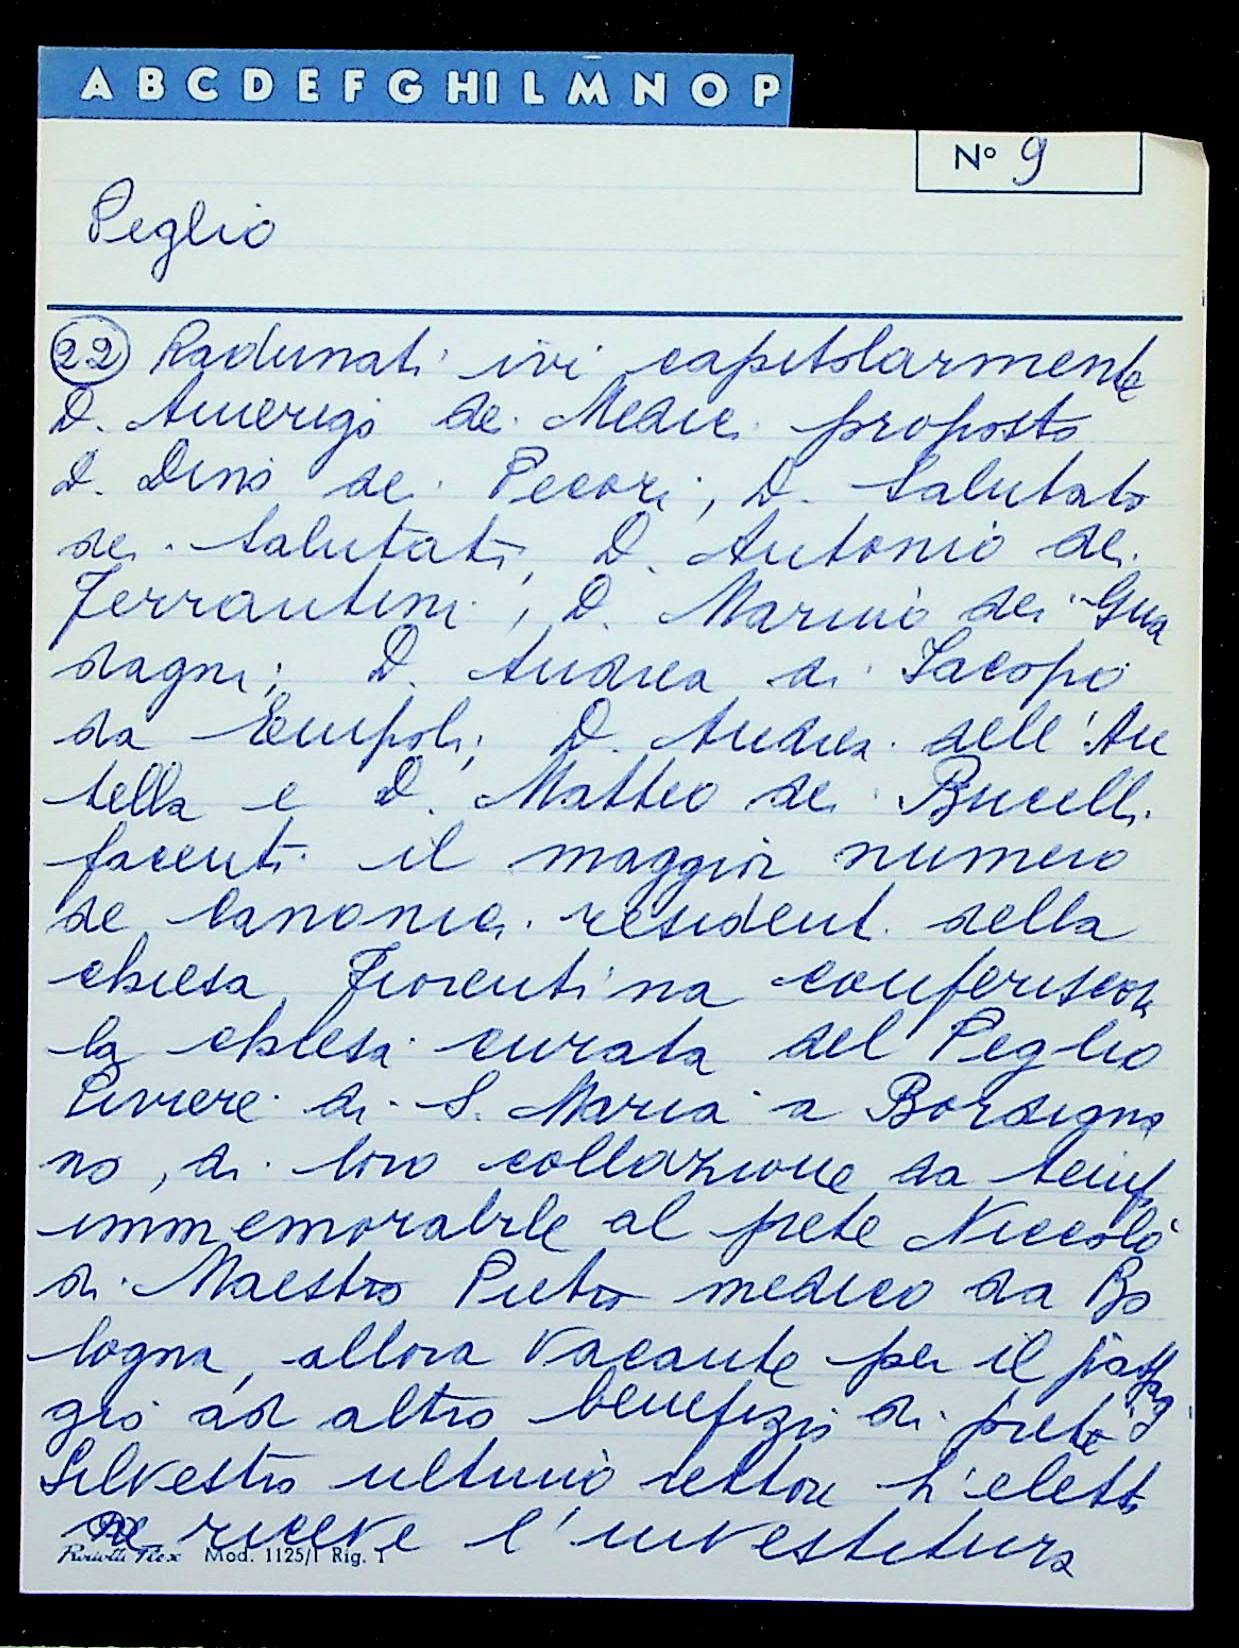 A B C D E F G H I L M N O P
N° 9
Peglio
22 Radunati ivi capitolarmente
D. Amerigo de Medici proposto
D. Dino dei Pecori, D. Salutato
dei Salutati, D. Antonio dei
Ferrantini, D. Marino dei Gua
dagni; D. Andrea di Jacopo
da Empoli; D. Andrea dell'An
tella e D. Matteo dei Bucelli
facenti il maggior numero
de Canonici residenti della
chiesa Fiorentina conferiscon
la chiesa curata del Peglio
Piviere di S. Maria a Bordigna
no, di loro collazione da temp
immemorabile al prete Niccolò
di Maestro Pietro medico da Bo
logna, allora vacante per il passag
gio ad altro benefizio di prete
Silvestro ultimo rettore L'eletto
ne riceve l'investitura
Mod. 1125/1 Rig. 1